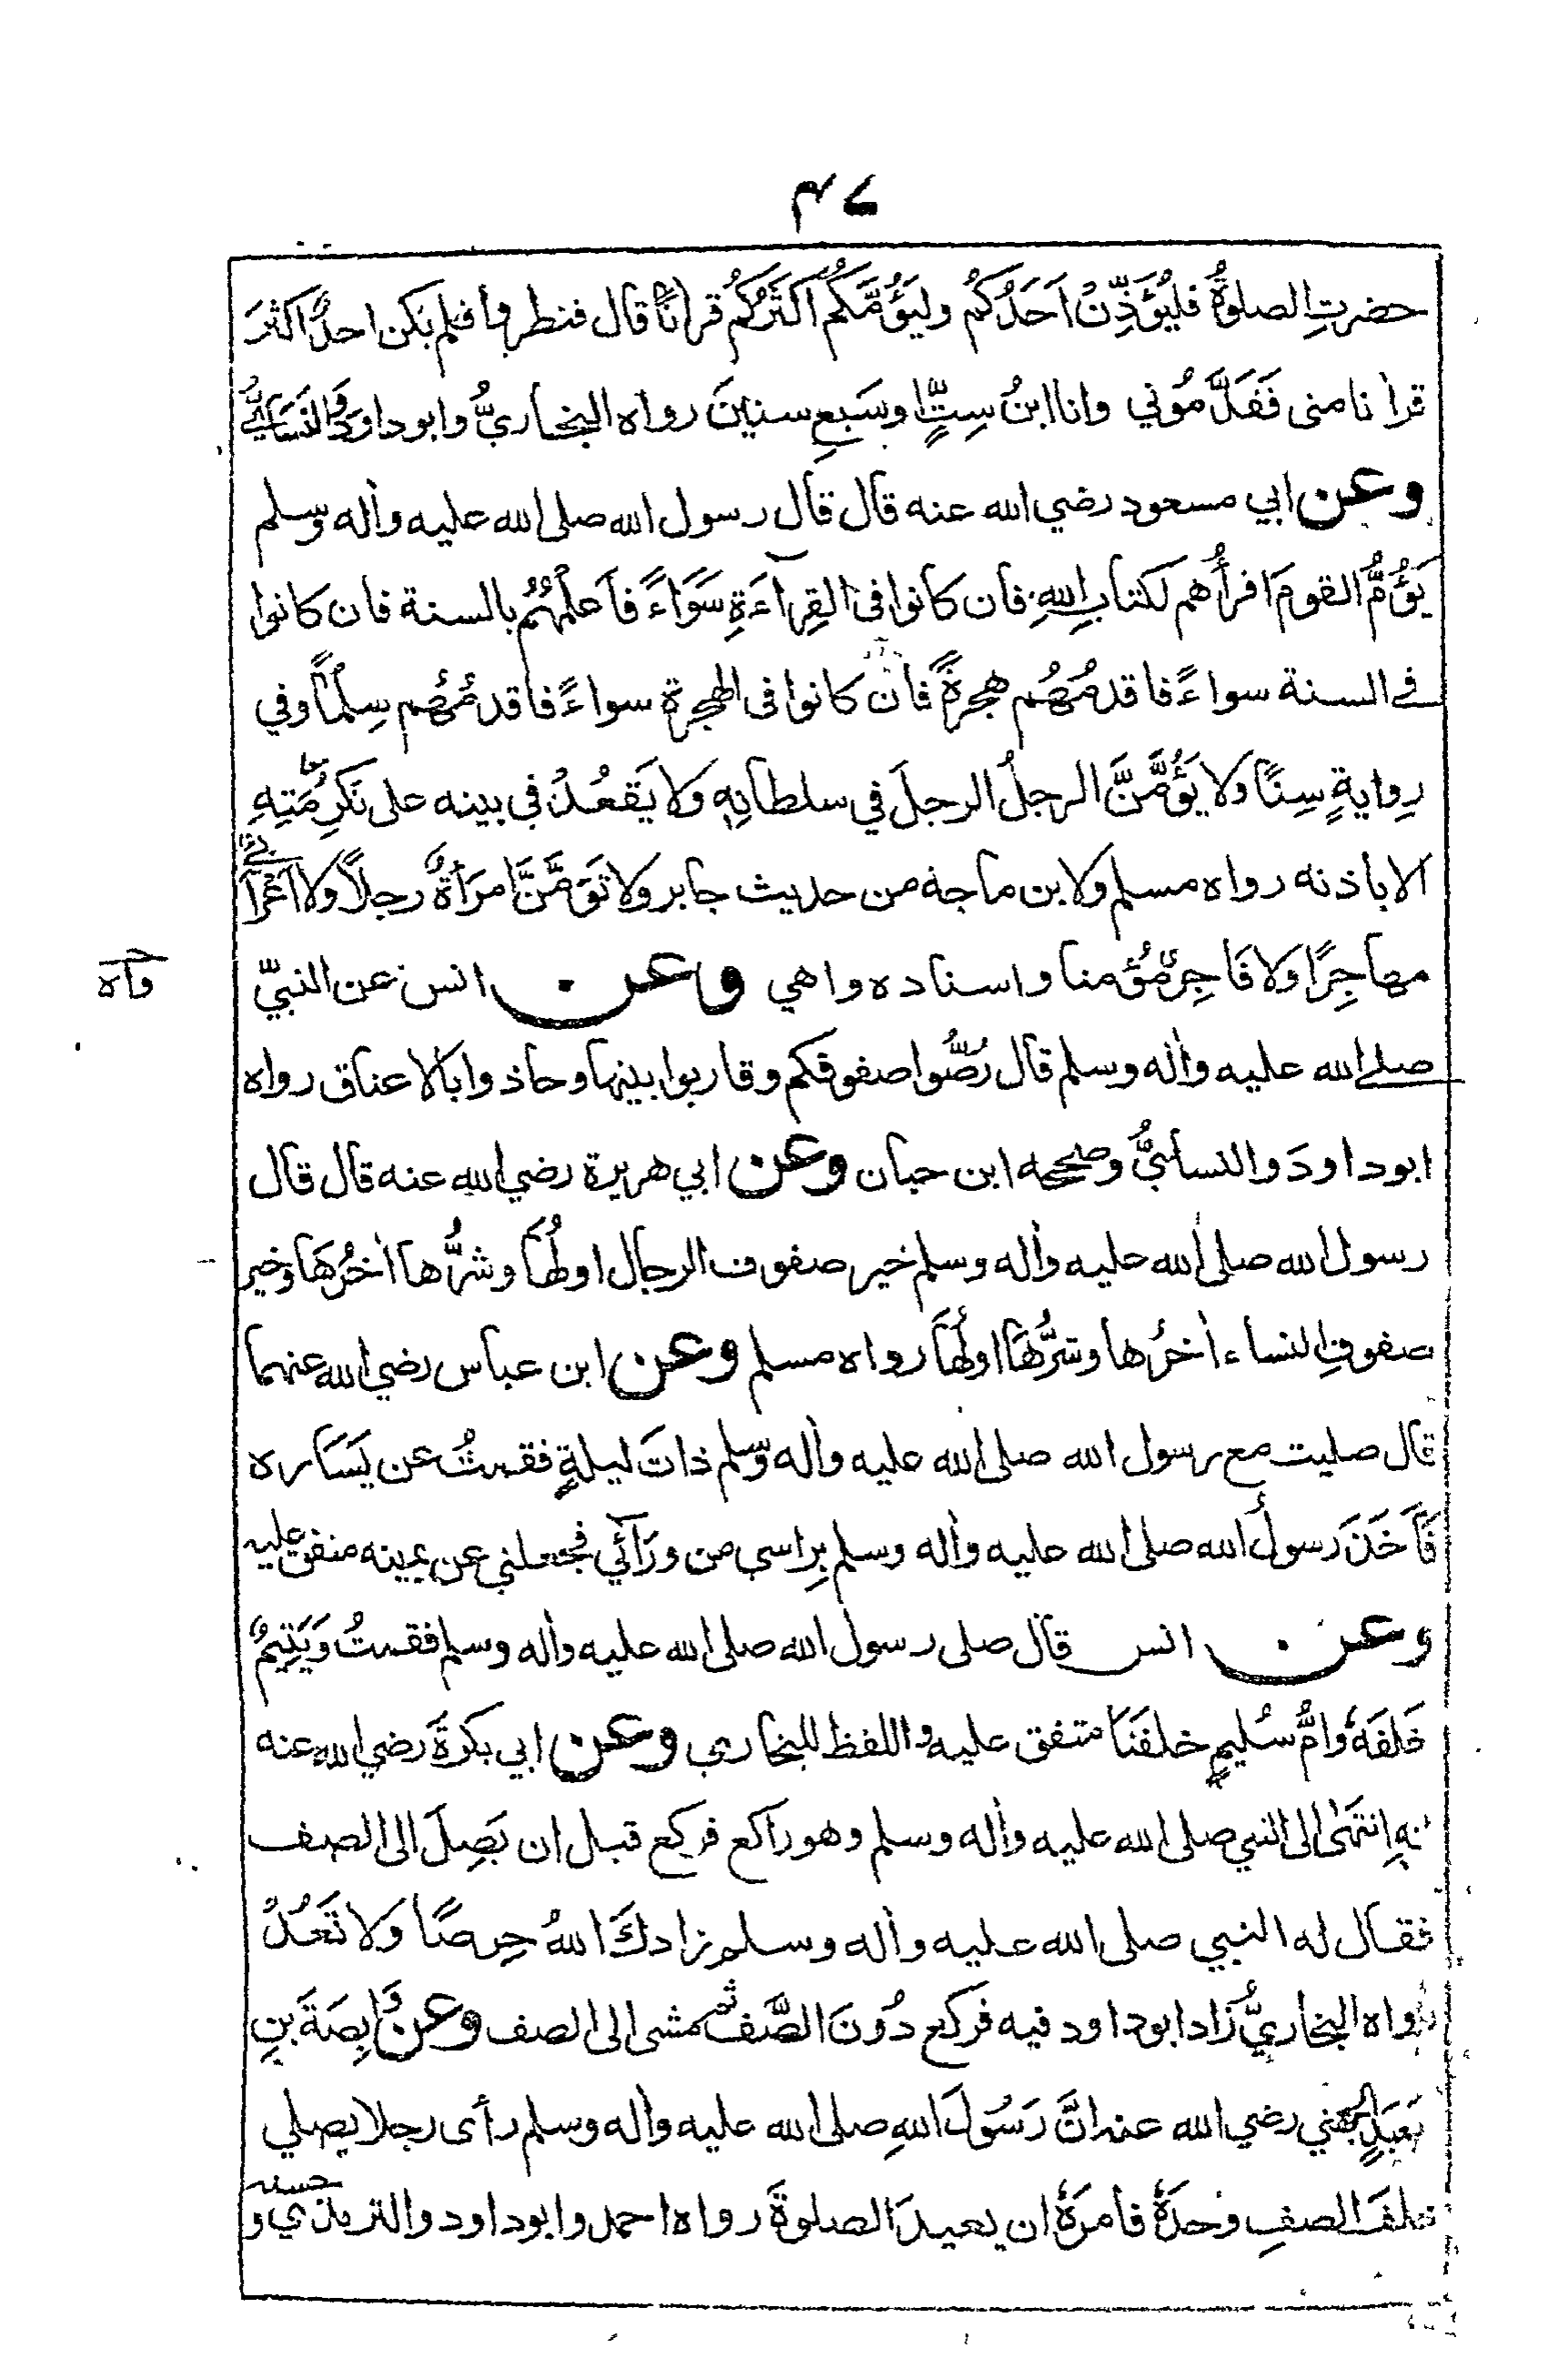 ٤٧
حضرتِ الصلوةُ فليُؤَذِّنْ اَحَدُكُمْ وليَؤُمَّكُمْ اَكثَرُكُمْ قرانًا قال فنظروا فلم يكن احدٌ اكثرَ
قرانا مني فَقَدَّمُوني وانا ابنُ سِتٍّ او سَبعِ سنينَ رواه البخاريُّ وابوداودَ والنَّسَائيُّ
وعن ابي مسعود رضي الله عنه قال قال رسول الله صلى الله عليه واٰله وسلم
يَؤُمُّ القومَ اقرأُهم لكتابِ اللهِ فان كانوا في القِراءَةِ سَوَاءً فاَعلمُهُم بالسنة فان كانوا
في السنة سواءً فاقدمُهُم هجرةً فان كانوا في الهجرة سواءً فاقدمُهُم سِلمًا وفي
رِوايةٍ سِنًّا ولا يَؤُمَّنَّ الرجلُ الرجلَ في سلطانِهٖ ولا يَقعُدْ في بيته على تَكرِمَتِهِ
الا باذنه رواه مسلم ولابن ماجة من حديث جابر ولا تَؤمَّنَّ امرَأةٌ رجلاً ولا اَعْرابيٌّ
مهاجِرًا ولا فَاجِرٌ مُؤمنا واسناده واهي وعن انس عن النبيّ
واه
صلى الله عليه واٰله وسلم قال رُصُّوا صفوفكم وقاربوا بينها وحاذوا بالاعناق رواه
ابوداودَ والنسائيُّ وصححه ابن حبان وعن ابي هريرة رضي الله عنه قال قال
رسول الله صلى الله عليه واٰله وسلم خير صفوف الرجال اولُهَا وشرُّها اٰخرُهَا وخير
صفوفِ النساء اٰخرُها وشرُّهَا اولُهَا رواه مسلم وعن ابن عباس رضي الله عنهما
قال صليت مع رسول الله صلى الله عليه واٰله وسلم ذاتَ ليلةٍ فقمتُ عن يَسَاره
فَاَخَذَ رسولُ الله صلى الله عليه واٰله وسلم بِراسي من ورَآئي فجعلني عن يمينه متفق عليه
وعن انس قال صلى رسول الله صلى الله عليه واٰله وسلم فقمتُ وَيَتِيمٌ
خَلفَهٗ وامُّ سُليمٍ خلفَنَا متفق عليه واللفظ للبخاري وعن ابي بكرةَ رضي الله عنه
نهِ انتهٰى الى النبي صلى الله عليه واٰله وسلم وهو راكع فركع قبل ان يَصِلَ الى الصف
فقال له النبي صلى الله عليه واٰله وسلم زادكَ اللهُ حِرصًا ولا تَعُدْ
رواه البخاريُّ زَاد ابوداود فيه فركع دُونَ الصَّف ثم مشى الى الصف وعن وَابِصَةَ بنِ
مَعبَدٍ الجهني رضي الله عنه انَّ رَسُولَ اللهِ صلى الله عليه واٰله وسلم رأى رجلا يصلي
خلفَ الصفِ وحدَهٗ فأمرَهٗ ان يعيدَ الصلوةَ رواه احمد وابوداود والترمذي وحسنه